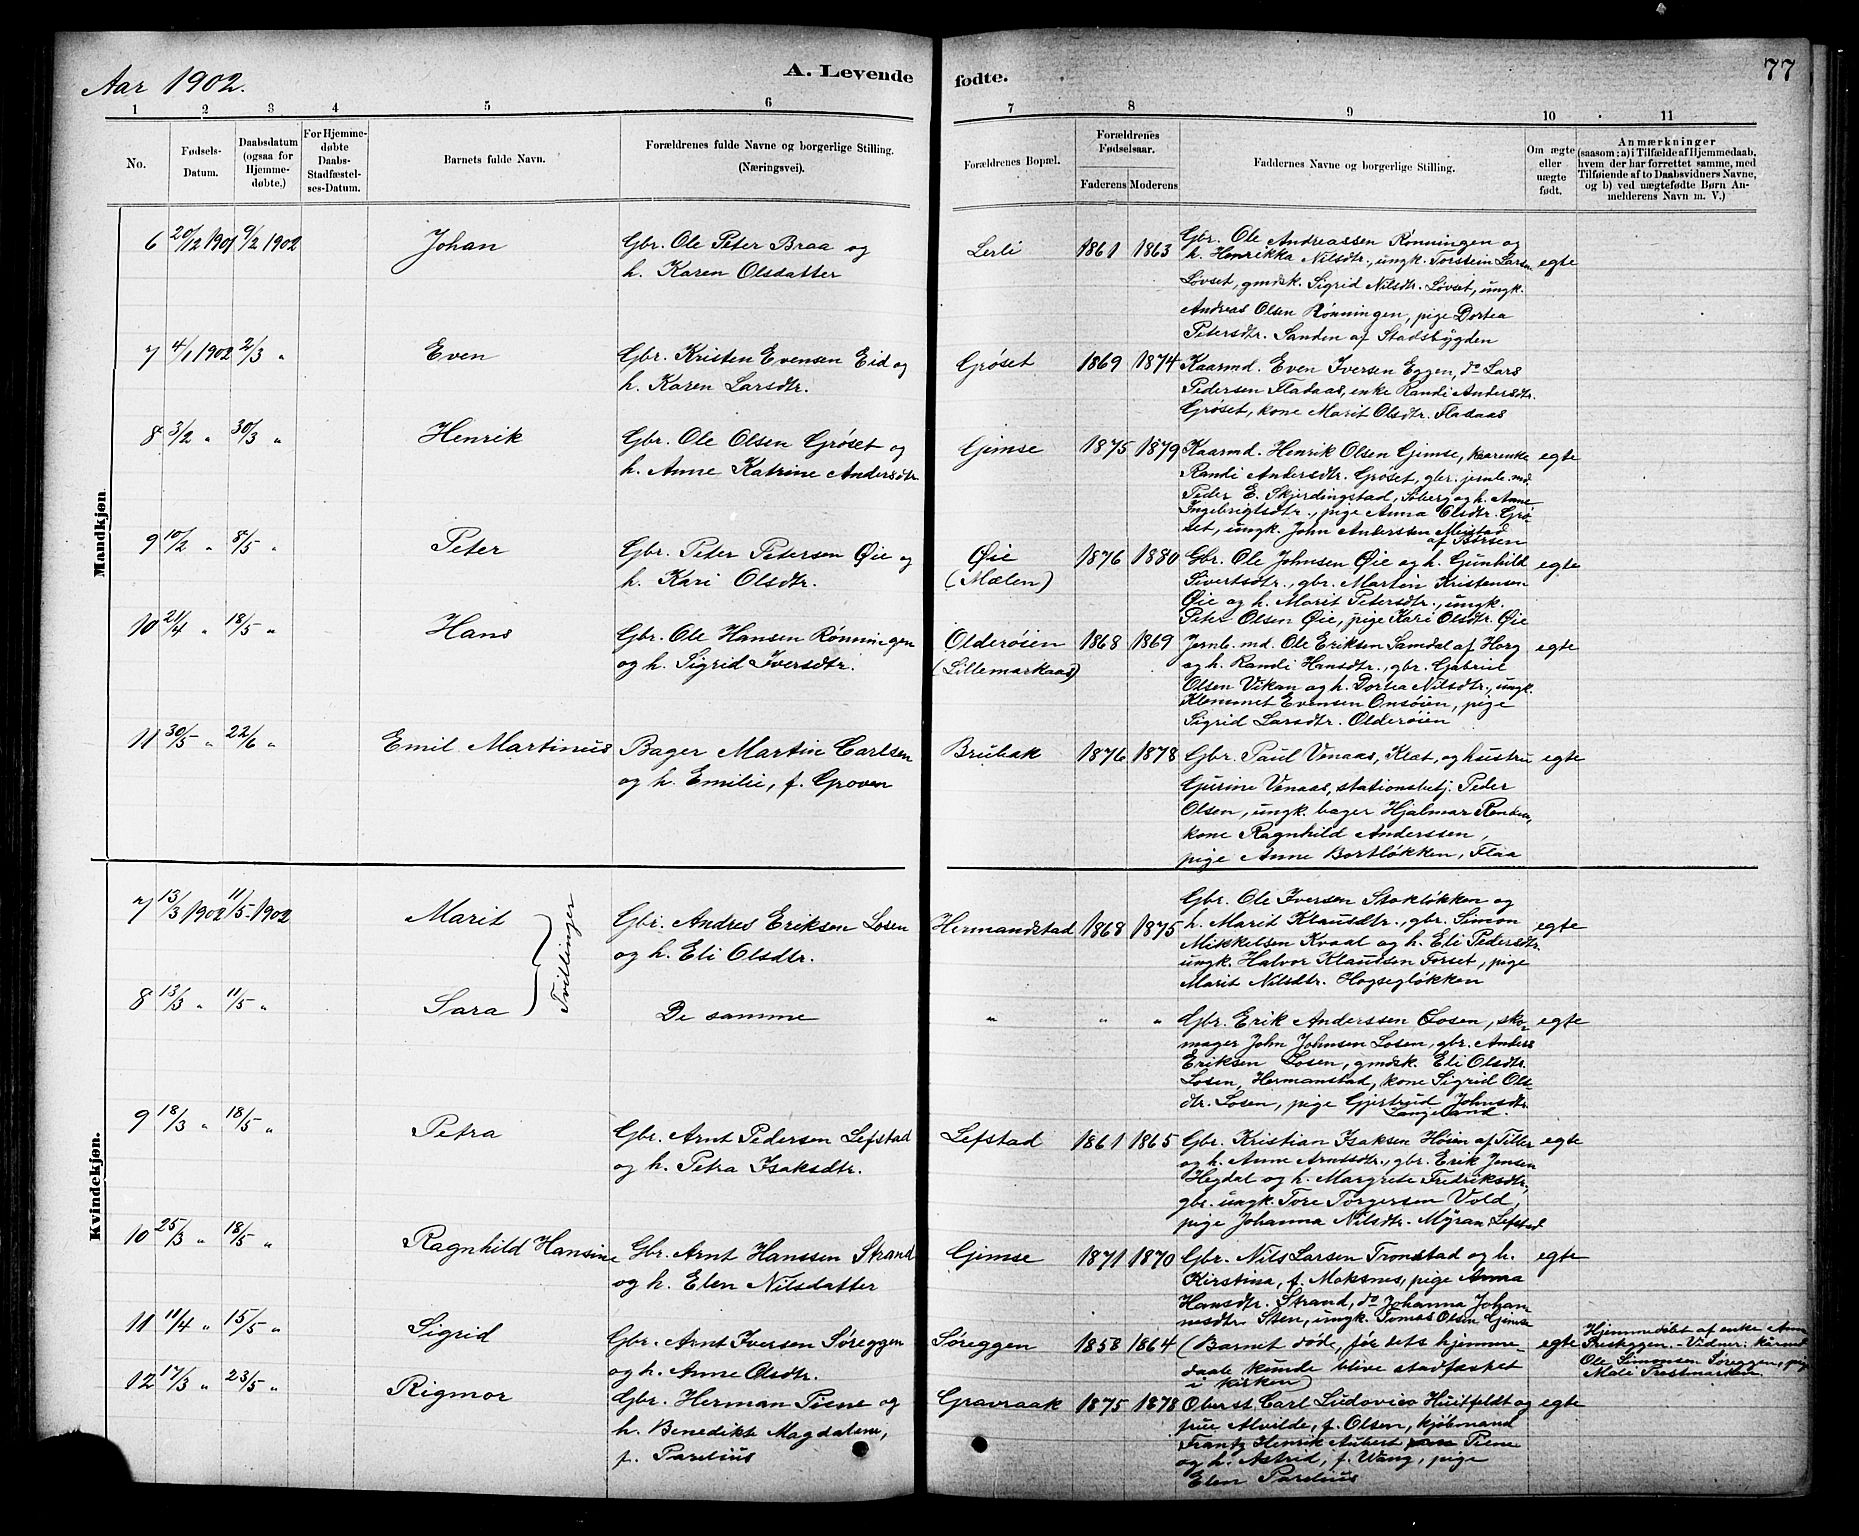 Aar 1902.
A. Levende
fødte.
77
1 2 3 4 5 6 7 8 9 10 11
No.
Fødsels-
Datum.
Daabsdatum
(ogsaa for
Hjemme-
døbte.)
For Hjemme-
døbte
Daabs-
Stadfæstel-
ses-Datum.
Barnets fulde Navn.
Forældrenes fulde Navne og borgerlige Stilling.
(Næringsvei).
Forældrenes Bopæl.
Forældrenes
Fødselsaar.
Faderens Moderens
Faddernes Navne og borgerlige Stilling.
Om ægte
eller
uægte
født.
Anmærkninger
(saasom: a) i Tilfælde af Hjemmedaab,
hvem der har forrettet samme, med
Tilføiende af to Daabsvidners Navne,
og b) ved uægtefødte Børn An-
melderens Navn m. V.)
Mandkjøn
6 20/12 1901 9/2 1902 Johan
Gbr. Ole Peter Braa og
h. Karen Olsdatter
Lerli 1861 1863
Gbr. Ole Andreassen Rønningen og
h. Henrikka Nilsdtr., ungk. Torstein Larsen
Løvset, gmdsk. Sigrid Nilsdtr. Løvset, ungk.
Andreas Olsen Rønningen, pige Dortea
Petersdtr. Sanden af Stadsbygden
egte
7 4/1 1902 2/3 " Even
Gbr. Kristen Evensen Eid og
h. Karen Larsdtr.
Grøset 1869 1874
Kaarmd. Even Iversen Eggen, do Lars
Pedersen Fladaas, enke Randi Andersdtr.
Grøset, kone Marit Olsdtr. Fladaas
8 3/2 " 30/3 " Henrik
Gbr. Ole Olsen Grøset og
h. Anne Katrine Andersdtr
Gimse 1875 1879
Kaarmd. Henrik Olsen Gimse, kaarenke
Randi Andersdtr. Grøset, gbr. jernb. md.
Peder E. Skjerdingstad, Søberg og h. Anne
Ingebrigtsdtr., pige Anna Olsdtr. Grø-
set, ungk. John Anderssen Megstad
af Børsen
egte
9 10/2 " 8/5 " Peter
Gbr. Peter Petersen Øie og
h. Kari Olsdtr.
Øie
(Mælen)
1876 1880
Gbr. Ole Johnsen Øie og h. Gunhild
Sivertsdtr., gbr. Martin Kristensen
Øie og h. Marit Petersdtr., ungk.
Peter Olsen Øie, pige Kari Olsdtr. Øie
egte
10 21/4 " 18/5 " Hans
Gbr. Ole Hansen Rønningen
og h. Sigrid Iversdtr.
Olderøien
(Lillemarkaas)
1868 1869
Jernb. md. Ole Eriksen Samdal af Horg
og h. Randi Hansdtr., gbr. Gabriel
Olsen Vikan og h. Dortea Nilsdtr., ungk.
Klemmet Evensen Onsøien, pige
Sigrid Larsdtr. Olderøien
egte
11 30/5 " 22/6 " Emil Martinus
Bager Martin Carlsen
og h. Emilie, f. Groven
Brubak 1876 1878
Gbr. Paul Venaas, Klæt, og hustru
Gurine Venaas, stationsbetj. Peder
Olsen, ungk. bager Hjalmar
kone Ragnhild Anderssen,
pige Anne Bortløkken, Flaa
egte
Kvindekjøn.
7 13/3 1902 11/5 1902 Marit
Tvillinger
Gbr. Andres Eriksen Losen
og h. Eli Olsdtr.
Hermandstad 1868 1875
Gbr. Ole Iversen Stokløkken og
h. Marit Klausdtr., gbr. Simon
Mikkelsen Kvaal og h. Eli Pedersdtr.
ungk. Halvor Klausen Forset, pige
Marit Nilsdtr. Hogsegløkken
egte
8 13/3 " 11/5 " Sara
De samme
" " "
Gbr. Erik Anderssen Losen, sko-
mager John Johnsen Losen, gbr. Anders
Eriksen Losen, gmdsk. Eli Olsdtr.
Losen, Hermanstad, kone Sigrid Ols-
dtr. Losen, pige Gjertrud Johnsdtr.
Langeland.
egte
9 18/3 " 18/5 " Petra
Gbr. Arnt Pedersen Lefstad
og h. Petra Isaksdtr.
Lefstad 1861 1865
Gbr. Kristian Isaksen Høien af Tiller
og h. Anne Arntsdtr., gbr. Erik Jensen
Hegdal og h. Margrete Fredriksdtr.,
gbr. ungk. Tore Torgersen Vold,
pige Johanna Nilsdtr. Myran Lefstad
egte
10 25/3 " 18/5 " Ragnhild Hansine
Gbr. Arnt Hanssen Strand
og h. Elen Nilsdatter
Gimse 1871 1870
Gbr. Nils Larsen Tronstad og h.
Kirstina, f. Moksnes, pige Anna
Hansdtr. Strand, do Johanna Johan-
nesdtr. Sten, ungk. Tomas Olsen Gimse
egte
11 11/4 " 15/5 " Sigrid
Gbr. Arnt Iversen Søreggen
og h. Anne Olsdtr.
Søreggen 1858 1864
(Barnet død, før dets hjemme-
daab kunde blive stadfæstet
i kirken)
egte
Hjemmedøbt af enke Ane
Presteggen. Vidner:
Ole Simonsen Søreggen, pige
Mali Trøstmarken
12 17/3 " 23/5 " Rigmor
Gbr. Herman Piene og
h. Benedikte Magdalene,
f. Parelius
Gravraak 1875 1878
Oberst Carl Ludovico Huitfeldt og
frue Alvilde, f. Olsen, kjøbmand
Frantz Henrik Aubert Piene
og h. Astrid, f. Wang, pige
Elen Parelius
egte